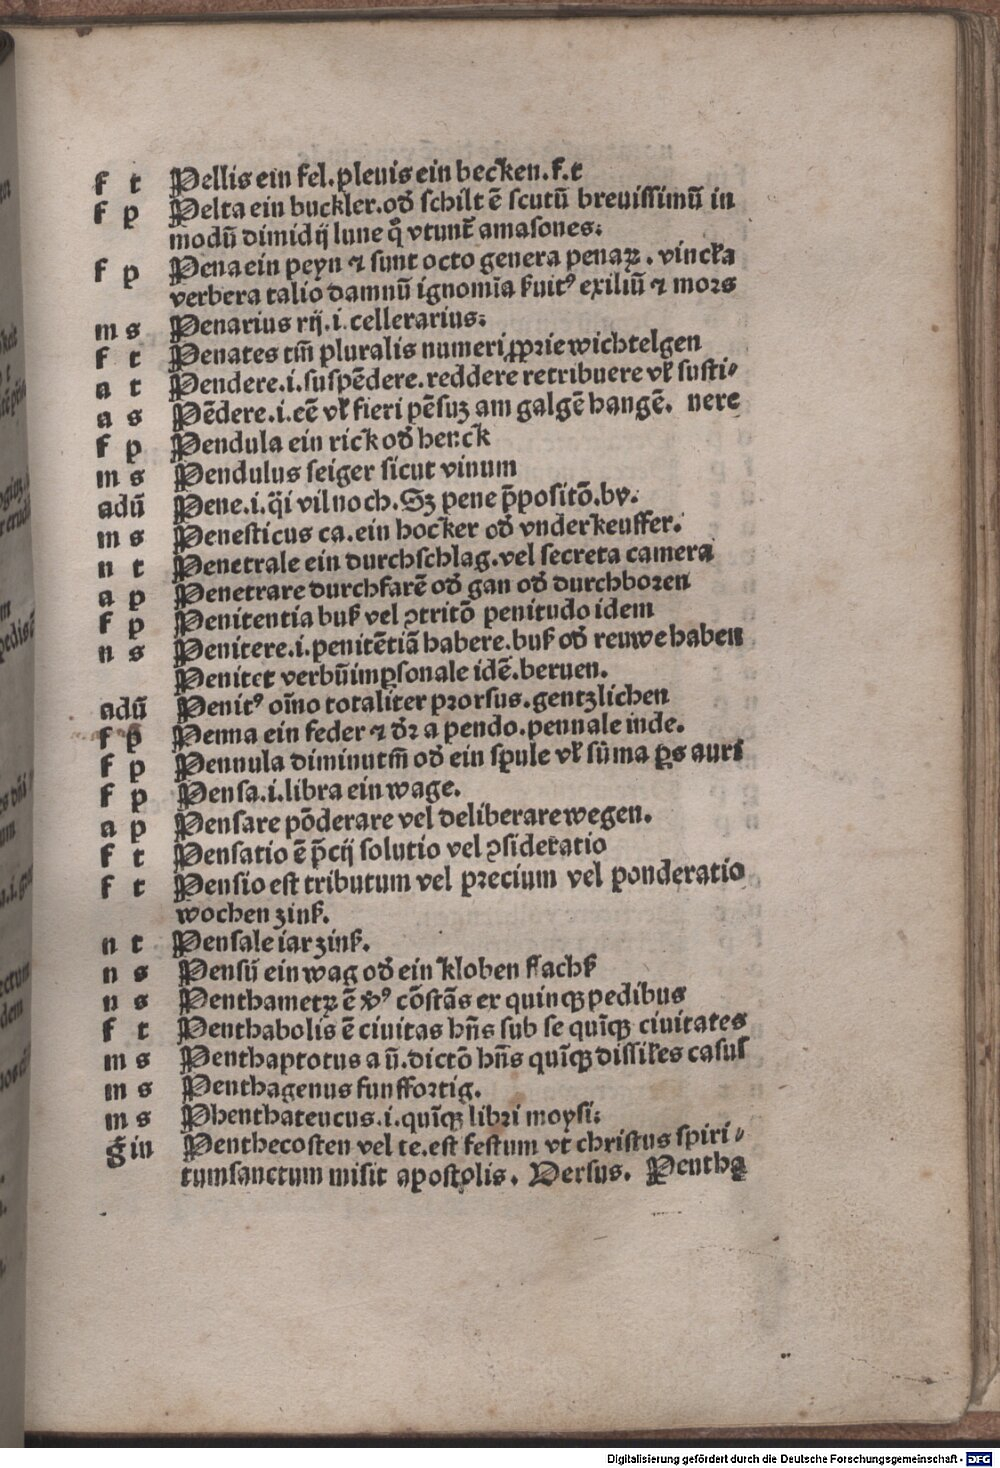 f t Pellis ein fel. pleuis ein becken. f. t
f p Pelta ein buckler. od̕ schilt ē scutū breuissimū in
modū dimidij lune q̄ vtunt᷑ amasones.
f p Pena ein peyn ⁊ sunt octo genera penaꝝ. vinckła
verbera talio damnū ignomīa ẜuitꝰ exiliū ⁊ mors
m s Penarius rij. i. cellerarius.
f t Penates tm̄ pluralis numeri ꝓprie wichtelgen
a t Pendere. i. suspēdere. reddere retribuere vł susti⸗
a s Pēdere. i. eē vł fieri pēsuꝫ am galgē hangē. nere
f p Pendula ein rick od̕ henck
m s Pendulus seiger sicut vinum
adū Pene. i. q̈i vil noch. Sꝫ pene p̄positō. by.
m s Penesticus ca. ein hocker od̕ vnderkeuffer.
n t Penetrale ein durchschlag. vel secreta camera
a p Penetrare durchfarē od̕ gan od̕ durchboren
f p Penitentia buß vel ꝯtritō penitudo idem
n s Penitere. i. penitētiā habere. buß od̕ reuwe haben
Penitet verbū impsonale idē. beruen.
adū Penitꝰ oīno totaliter prorsus. gentzlichen
f p Penna ein feder ⁊ d̕r a pendo. pennale inde.
f p Pennula diminutm̄ od̕ ein spule vł sūma ꝑs auris
f p Pensa. i. libra ein wage.
a p Pensare pōderare vel deliberare wegen.
f t Pensatio ē p̄cij solutio vel ꝯsideratio
f t Pensio est tributum vel precium vel ponderatio
wochen zinß.
n t Pensale iar zinß.
n s Pensū ein wag od̕ ein kloben flachß
n s Penthametꝝ ē v̕ꝰ cōstās ex quinqꝫ pedibus
f t Penthabolis ē ciuitas hn̄s sub se quīqꝫ ciuitates
m s Penthaptotus a ū. dictō hn̄s quīqꝫ dissiłes casus
m s Penthagenus funffortig.
m s Phenthateucus. i. quīqꝫ libri moysi.
g̅ in Penthecosten vel te. est festum vt christus spiri⸗
tumsanctum misit apostolis. Versus. Pentha
Digitalisierung gefördert durch die Deutsche Forschungsgemeinschaft - DFG